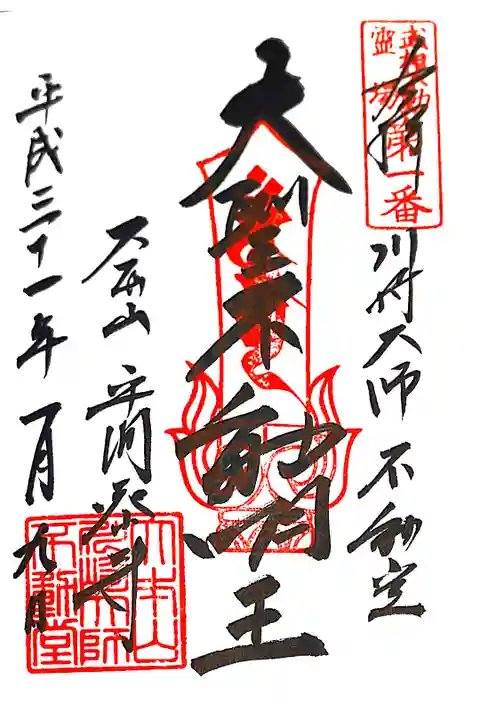 武相不動
霊場
第一番
奉拝
川崎大師 不動堂
大聖不動明王
大本山 平間寺
平成三十一年 一月 九日
大本山
川崎大師
不動堂